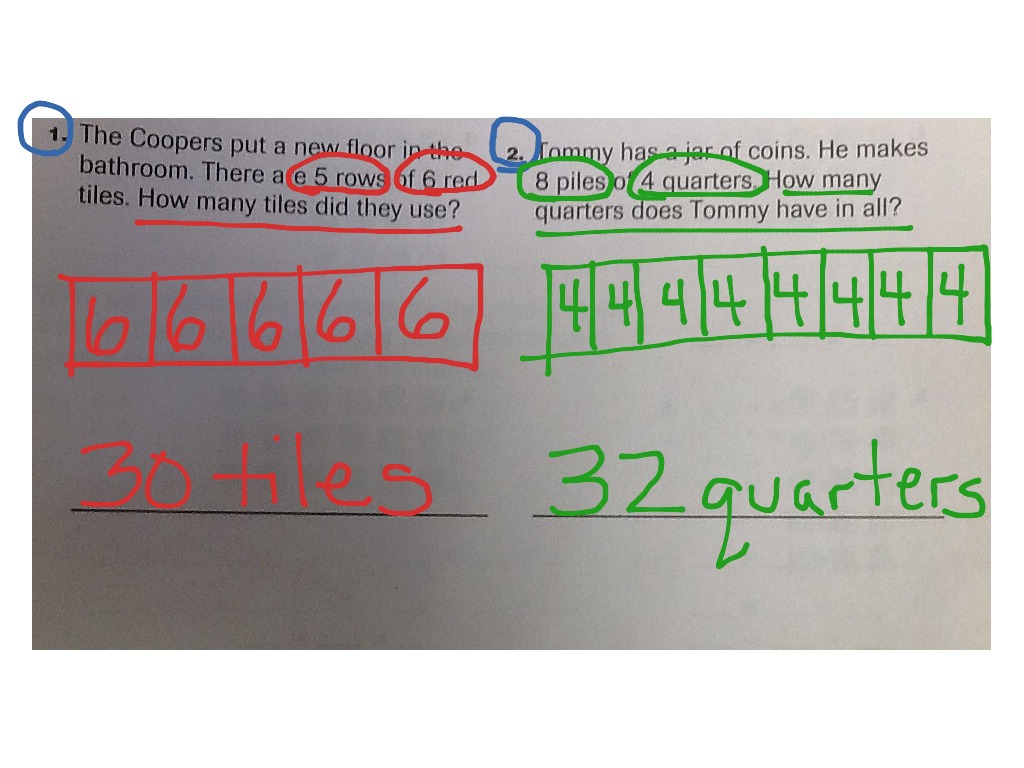 1. The Coopers put a new floor in the
bathroom. There are 5 rows of 6 red
tiles. How many tiles did they use?
6 6 6 6 6
30 tiles
2. Tommy has a jar of coins. He makes
8 piles of 4 quarters. How many
quarters does Tommy have in all?
4 4 4 4 4 4 4 4
32 quarters